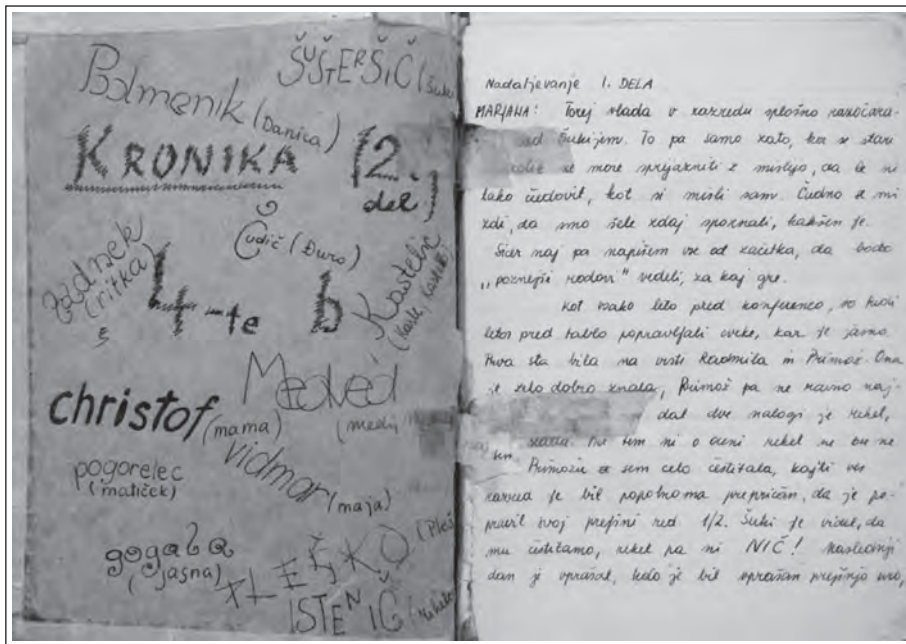 ŠUŠTERŠIČ (Šuki
Bolmenik (Danica)
KRONIKA (2. del)
Čudič (Đuro)
(ritka)
4-te b
Kastelic
Medved (medij
christof (mama)
vidmar (maja)
pogorelec (matiček)
gogala (jasna)
PLEŠKO (Pleš
ISTENIČ
Nadaljevanje 1. DELA
MARJANA: Torej vlada v razredu splošno razočara-
nad Šukijem. To pa samo zato, ker se stari
ne more sprijazniti z mislijo, da le ni
tako čudovit, kot si misli sam. Čudno se mi
zdi, da smo šele zdaj spoznali, kakšen je.
Sicer naj pa napišem vse od začetka, da bodo
"poznejši rodovi" vedeli, za kaj gre.
Kot vsako leto pred konferenco, so tudi
letos pred tablo popravljali cveke, kar je jasno.
Prva sta bila na vrsti Radmila in Primož. Ona
je zelo dobro znala, Primož pa ne ravno naj-
dal dve nalogi je rekel,
Pri tem ni o oceni rekel ne bu ne
Primožu sem celo čestitala, kajti ves
razred je bil popolnoma prepričan, da je po-
pravil svoj prejšnji red 1/2. Šuki je videl, da
mu čestitamo, rekel pa ni NIČ! Naslednji
dan je vprašal, kdo je bil vprašan prejšnjo uro,